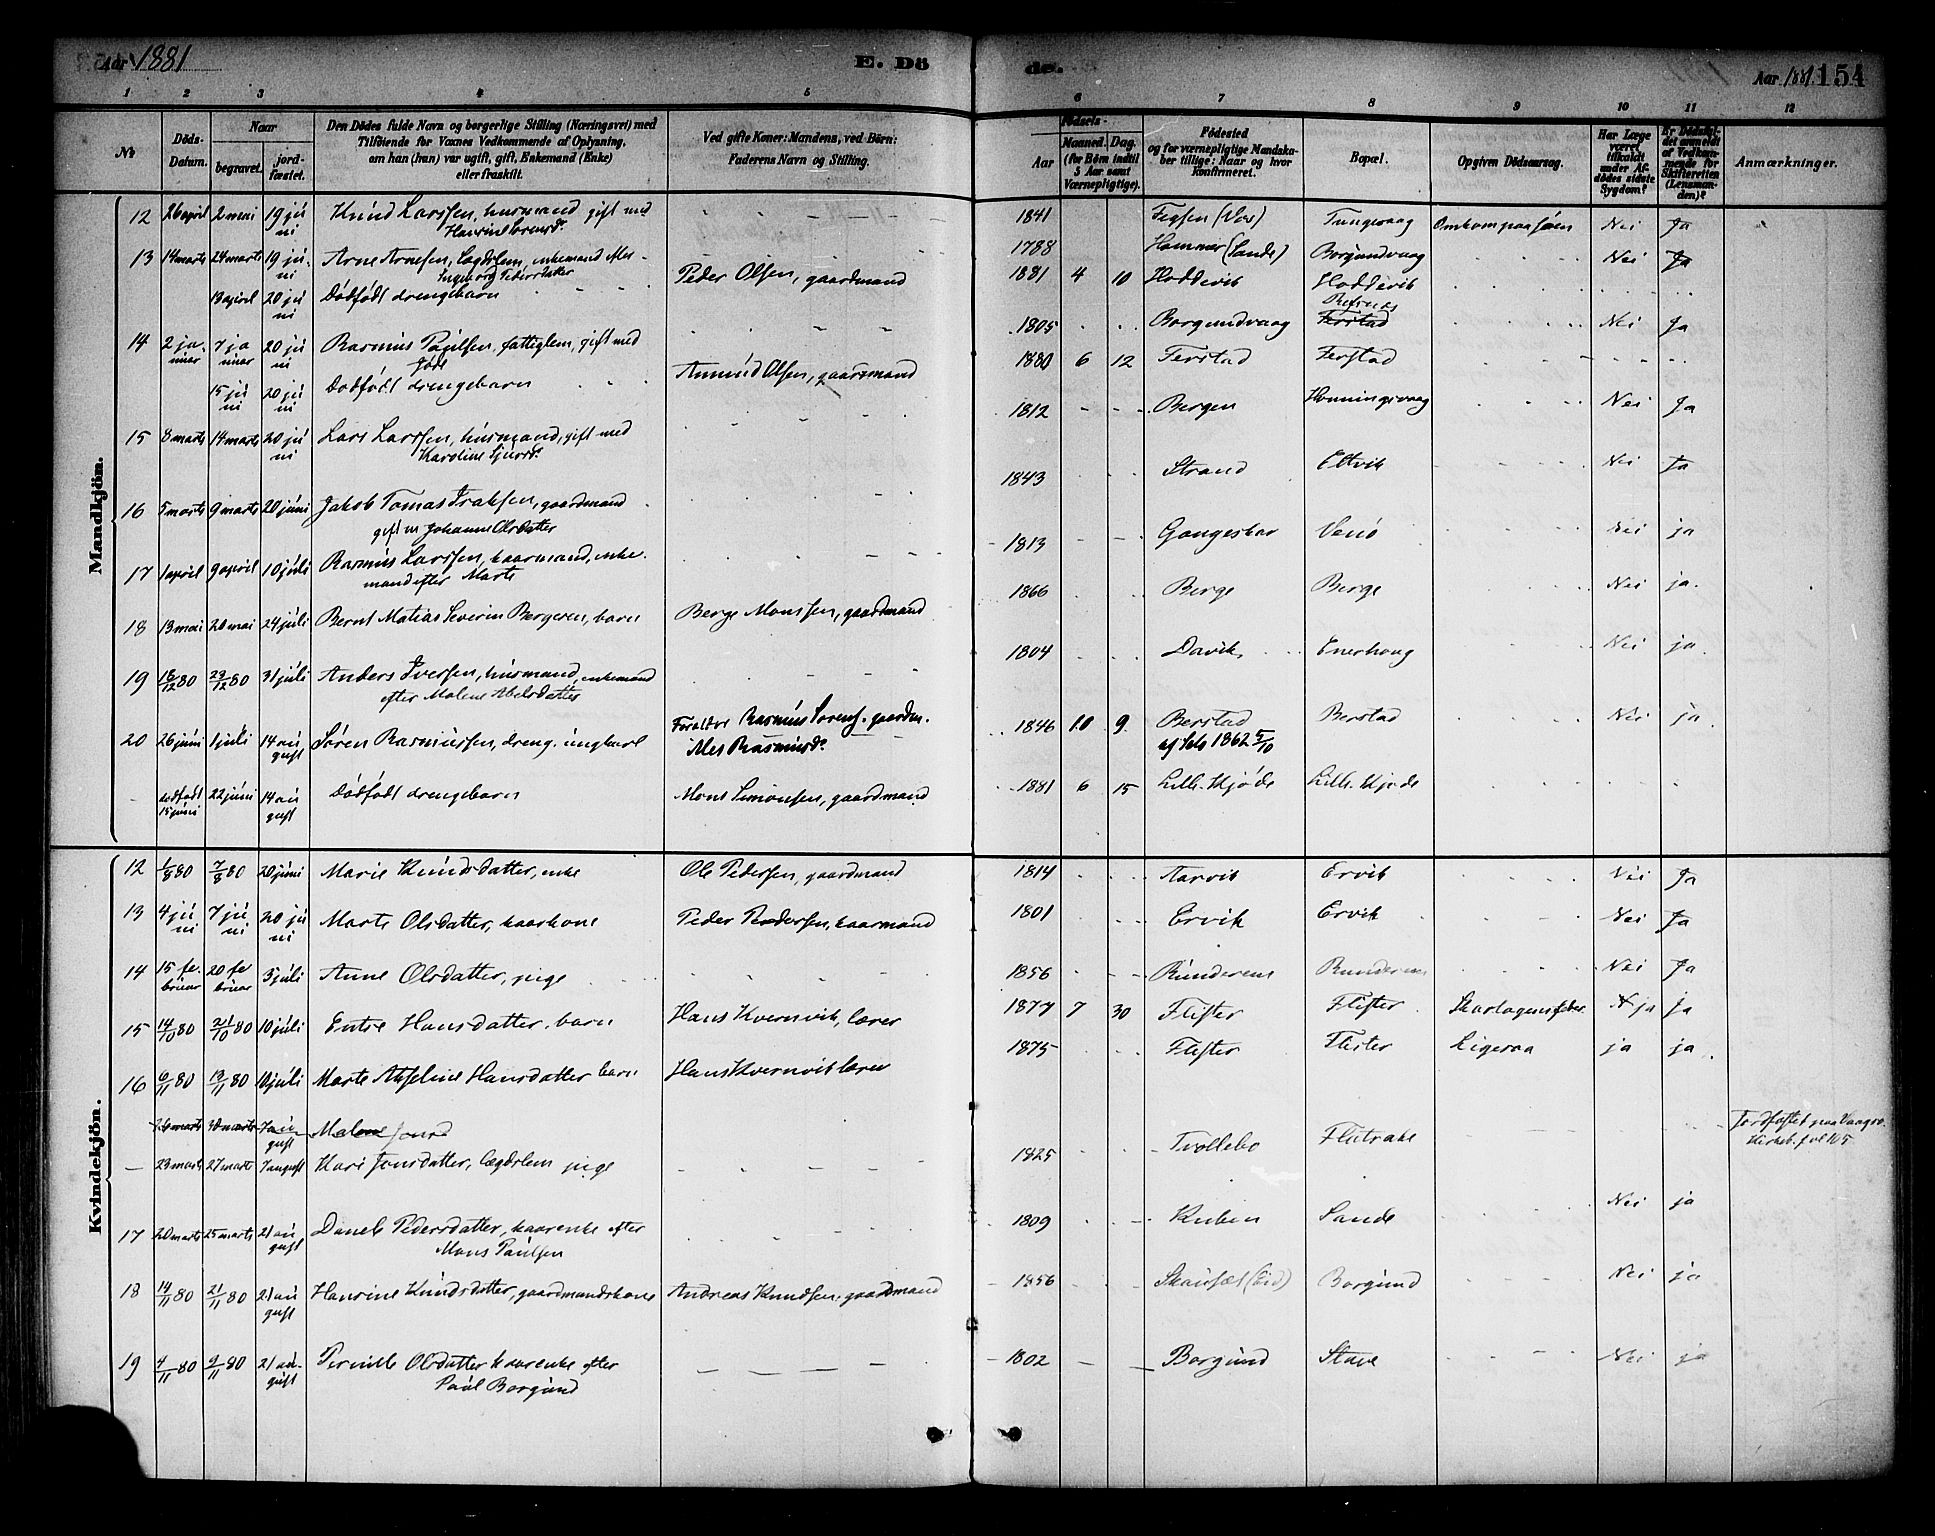 Aar 1881 E. Dö de. Aar 1881. 154
1 2 3 4 5 6 7 8 9 10 11 12
No Döds-Datum. Naar begravet. jordfæstet. Den Dödes fulde Navn og borgerlige Stilling (Næringsvei) med Tilföiende for Voxnes Vedkommende af Oplysning, om han (hun) var ugift, gift, Enkemand (Enke) eller fraskilt. Ved gifte Koner: Mandens, ved Börn: Faderens Navn og Stilling. Födsels- Aar Maaned. Dag. (for Börn indtil 5 Aar samt Værnepligtige). Födested og for værnepligtige Mandskaber tillige: Naar og hvor konfirmeret. Bopæl. Opgiven Dödsaarsag. Har Læge været tilkaldt under Afdödes sidste Sygdom? Er Dödsfaldet anmeldt af Vedkommende for Skifteretten (Lensmanden)? Anmærkninger.
Mandkjön.
12 26 april 2 mai 19 juni Knud Larssen, husmand gift med 1841 Tungevaag Omkom paa søen Nei Ja
13 14 marts 24 marts 19 juni Arne Arnesen, Lægdslem, enkemand 1788 Hammer (Sande) Borgundvaag Nei Ja
Ingeborg Pedersdatter
13 april 20 juni Dödfödt drengebarn Peder Olsen, gaardmand 1881 4 10 Hoddevik Hoddevik
14 2 januar 7 januar 20 juni Rasmus Paulsen, fattiglem, gift med 1805 Borgundvaag Ferstad Nei Ja
15 juni 20 juni Dödfödt drengebarn Anmund Olsen, gaardmand 1880 6 12 Ferstad Ferstad
15 8 marts 14 marts 20 juni Lars Larssen, husmand, gift med 1812 Bergen Honningsvaag Nei Ja
Karoline Sjursd.
16 5 marts 9 marts 20 juni Jakob Tomas Isaksen, gaardmand 1843 Strand Eltvik Nei Ja
gift m Johanne Olsdatter
17 1 april 9 april 10 juli Rasmus Larssen, kaarmand, enke- 1813 Vero Nei ja
mand efter Marte
18 13 mai 20 mai 24 juli Bernt Matias Severin Bergesen, barn Berge Monssen, gaardmand 1866 Berge Berge Nei ja.
19 16/12 80 23/12 80 31 juli Anders Iversen, husmand, enkemand 1804 Davik Enerhaug Nei ja
efter Malene Abelsdatter
20 26 juni 1 juli 14 august Søren Rasmussen, dreng. ungkarl Forældre Rasmus Sorens. gaardm. 1846 10 9 Berstad Berstad Nei ja
Rasmusd. 1862 5/10
dødfødt 15 juni 22 juni 14 august Dödfödt drengebarn Mons Simonsen, gaardmand 1881 6 15 Lille-Kjøde Lille-Kjøde
Kvindekjön.
12 1/8 80 7/8 80 20 juni Marie Knudsdatter, enke Ole Pedersen, gaardmand 1814 Aarvik Ervik Nei Ja
13 4 juni 7 juni 20 juni Marte Olsdatter, kaarkone Peder Pedersen, kaarmand 1801 Ervik Ervik Nei Ja
14 15 februar 20 februar 3 juli Anne Olsdatter, pige 1856 Rundereim Runderem Nei Ja
15 14/10 80 21/10 80 10 juli Entse Hansdatter, barn Hans Kvernvik, lærer 1877 7 30 Flister Flister Skarlagensfeber ja ja
16 6/11 80 13/11 80 10 juli Marte Akseline Hansdatter barn Hans Kvernvik lærer 1875 Flister Flister Ligesaa ja ja
26 marts 30 marts 7 august Malene Jonsd
— 23 marts 27 marts 7 august Kari Jonsdatter, lægdslem pige 1825 Trollebo Flatrake Jordfæstet paa Vaagsø
Kirkeb. fol 105
17 20 marts 25 marts 21 august Danele Pedersdatter, kaarenke efter 1809 Kuben Sande Nei ja
Mons Paulsen
18 14/11 80 21/11 80 21 august Hansine Knudsdatter, gaardmandskone Andreas Knudsen, gaardmand 1856 Skaufæl (Eid) Borgund Nei ja
19 4/11 80 9/11 80 21 august Pernille Olsdatter kaarenke efter 1802 Borgund Stave Nei ja
Paul Borgund